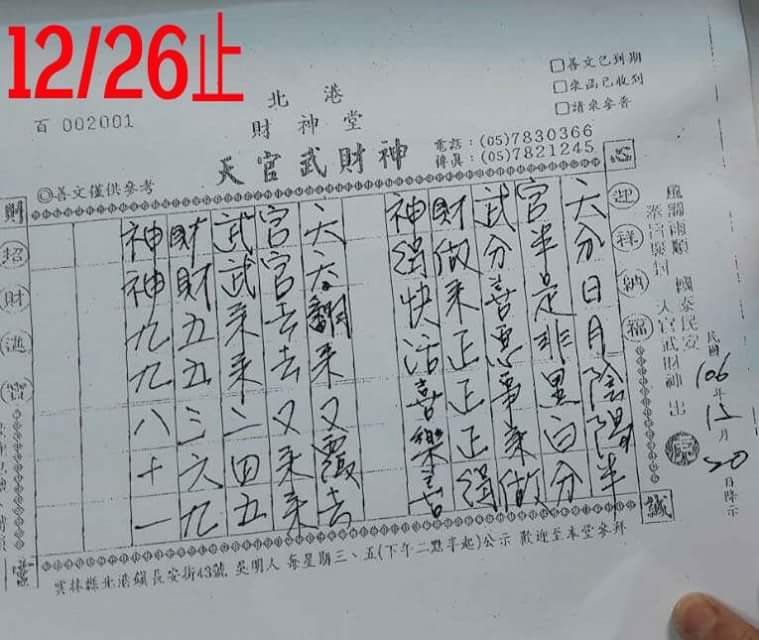 12/26止
北港
財神堂
天官武財神
百 002001
◎善文僅供參考
□善文已到期
□來函已收到
□請來參香
電話：(05)7830366
傳真：(05)7821245
風調雨順 國泰民安
天官武財神 出
民國106年12月20日降示
心
迎祥納福
誠
天分日月陰陽半
官半是非黑白分
武分善惡事來做
財做來正正正得
神得快活喜樂善
天天翻來又覆去
官官去去又來來
武武來來二四五
財財五五三六九
神神九九八十一
財
招財進寶
雲林縣北港鎮長安街43號 吳明人 每星期三、五(下午二點半起)公示 歡迎至本堂參拜